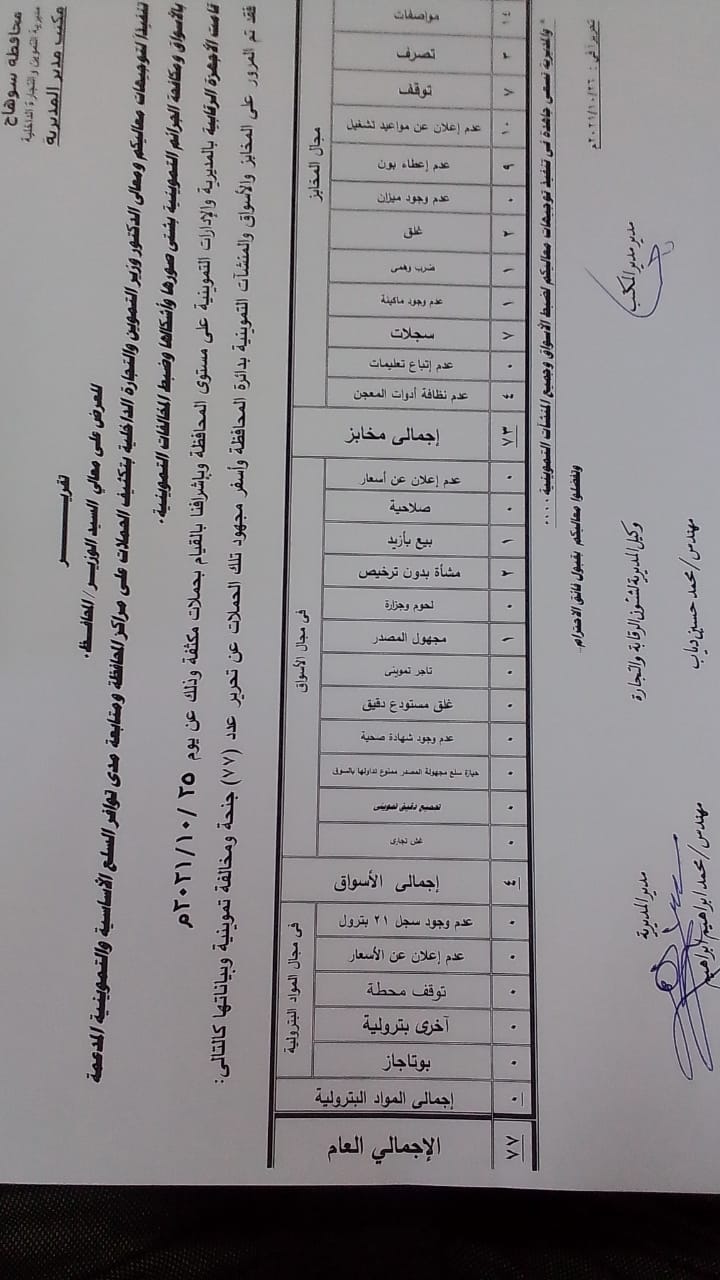 محافظة سوهاج
مديرية التموين والتجارة الداخلية
مكتب مدير المديرية
تقريـــــــر
للعرض على معالى السيد الوزيـر / المحافـظ.
تنفيذاً لتوجيهات معاليكم ومعالى الدكتور وزير التموين والتجارة الداخلية بتكثيف الحملات على مراكز المحافظة ومتابعة مدى توافر السلع الأساسية والتموينية المدعمة
بالأسواق ومكافحة الجرائم التموينية بشتى صورها وأشكالها وضبط المخالفات التموينية.
قامت الأجهزة الرقابية بالمديرية والإدارات التموينية على مستوى المحافظة وبإشرافنا بالقيام بحملات مكثفة وذلك عن يوم ٢٠٢١/١٠/٢٥م
فقد تم المرور على المخابز والأسواق والمنشآت التموينية بدائرة المحافظة وأسفر مجهود تلك الحملات عن تحرير عدد (٧٧) جنحة ومخالفة تموينية وبياناتها كالتالى:
مجال المخابز
مواصفات ١٤
تصرف ٣
توقف ٧
عدم إعلان عن مواعيد تشغيل ١٠
عدم إعطاء بون ٩
عدم وجود ميزان ٠
غلق ٢
ضرب وهمى ١
عدم وجود ماكينة ١
سجلات ٧
عدم إتباع تعليمات ٠
عدم نظافة أدوات المعجن ٤
إجمالى مخابز ٧٣
فى مجال الأسواق
عدم إعلان عن أسعار ٠
صلاحية ٠
بيع بأزيد ١
منشأة بدون ترخيص ٢
لحوم وجزارة ٠
مجهول المصدر ١
تاجر تموينى ٠
غلق مستودع دقيق ٠
عدم وجود شهادة صحية ٠
حيازة سلع مجهولة المصدر ممنوع تداولها بالسوق ٠
تجميع دقيق تموينى ٠
غش تجارى ٠
إجمالى الأسواق ٤
فى مجال المواد البترولية
عدم وجود سجل ٢١ بترول ٠
عدم إعلان عن الأسعار ٠
توقف محطة ٠
آخرى بترولية ٠
بوتاجاز ٠
إجمالى المواد البترولية ٠
الإجمالي العام ٧٧
* والمديرية تسعى جاهدة فى تنفيذ توجيهات معاليكم لضبط الأسواق وجميع المنشآت التموينية ....
وتفضلوا معاليكم بقبول فائق الاحترام..
تحريراً فى : ٢٠٢١/١٠/٢٦م
مدير مدير المكتب
وكيل المديرية لشئون الرقابة والتجارة
مهندس/ محمد حسين دياب
مدير المديرية
مهندس/ محمد ابراهيم ابراهيم